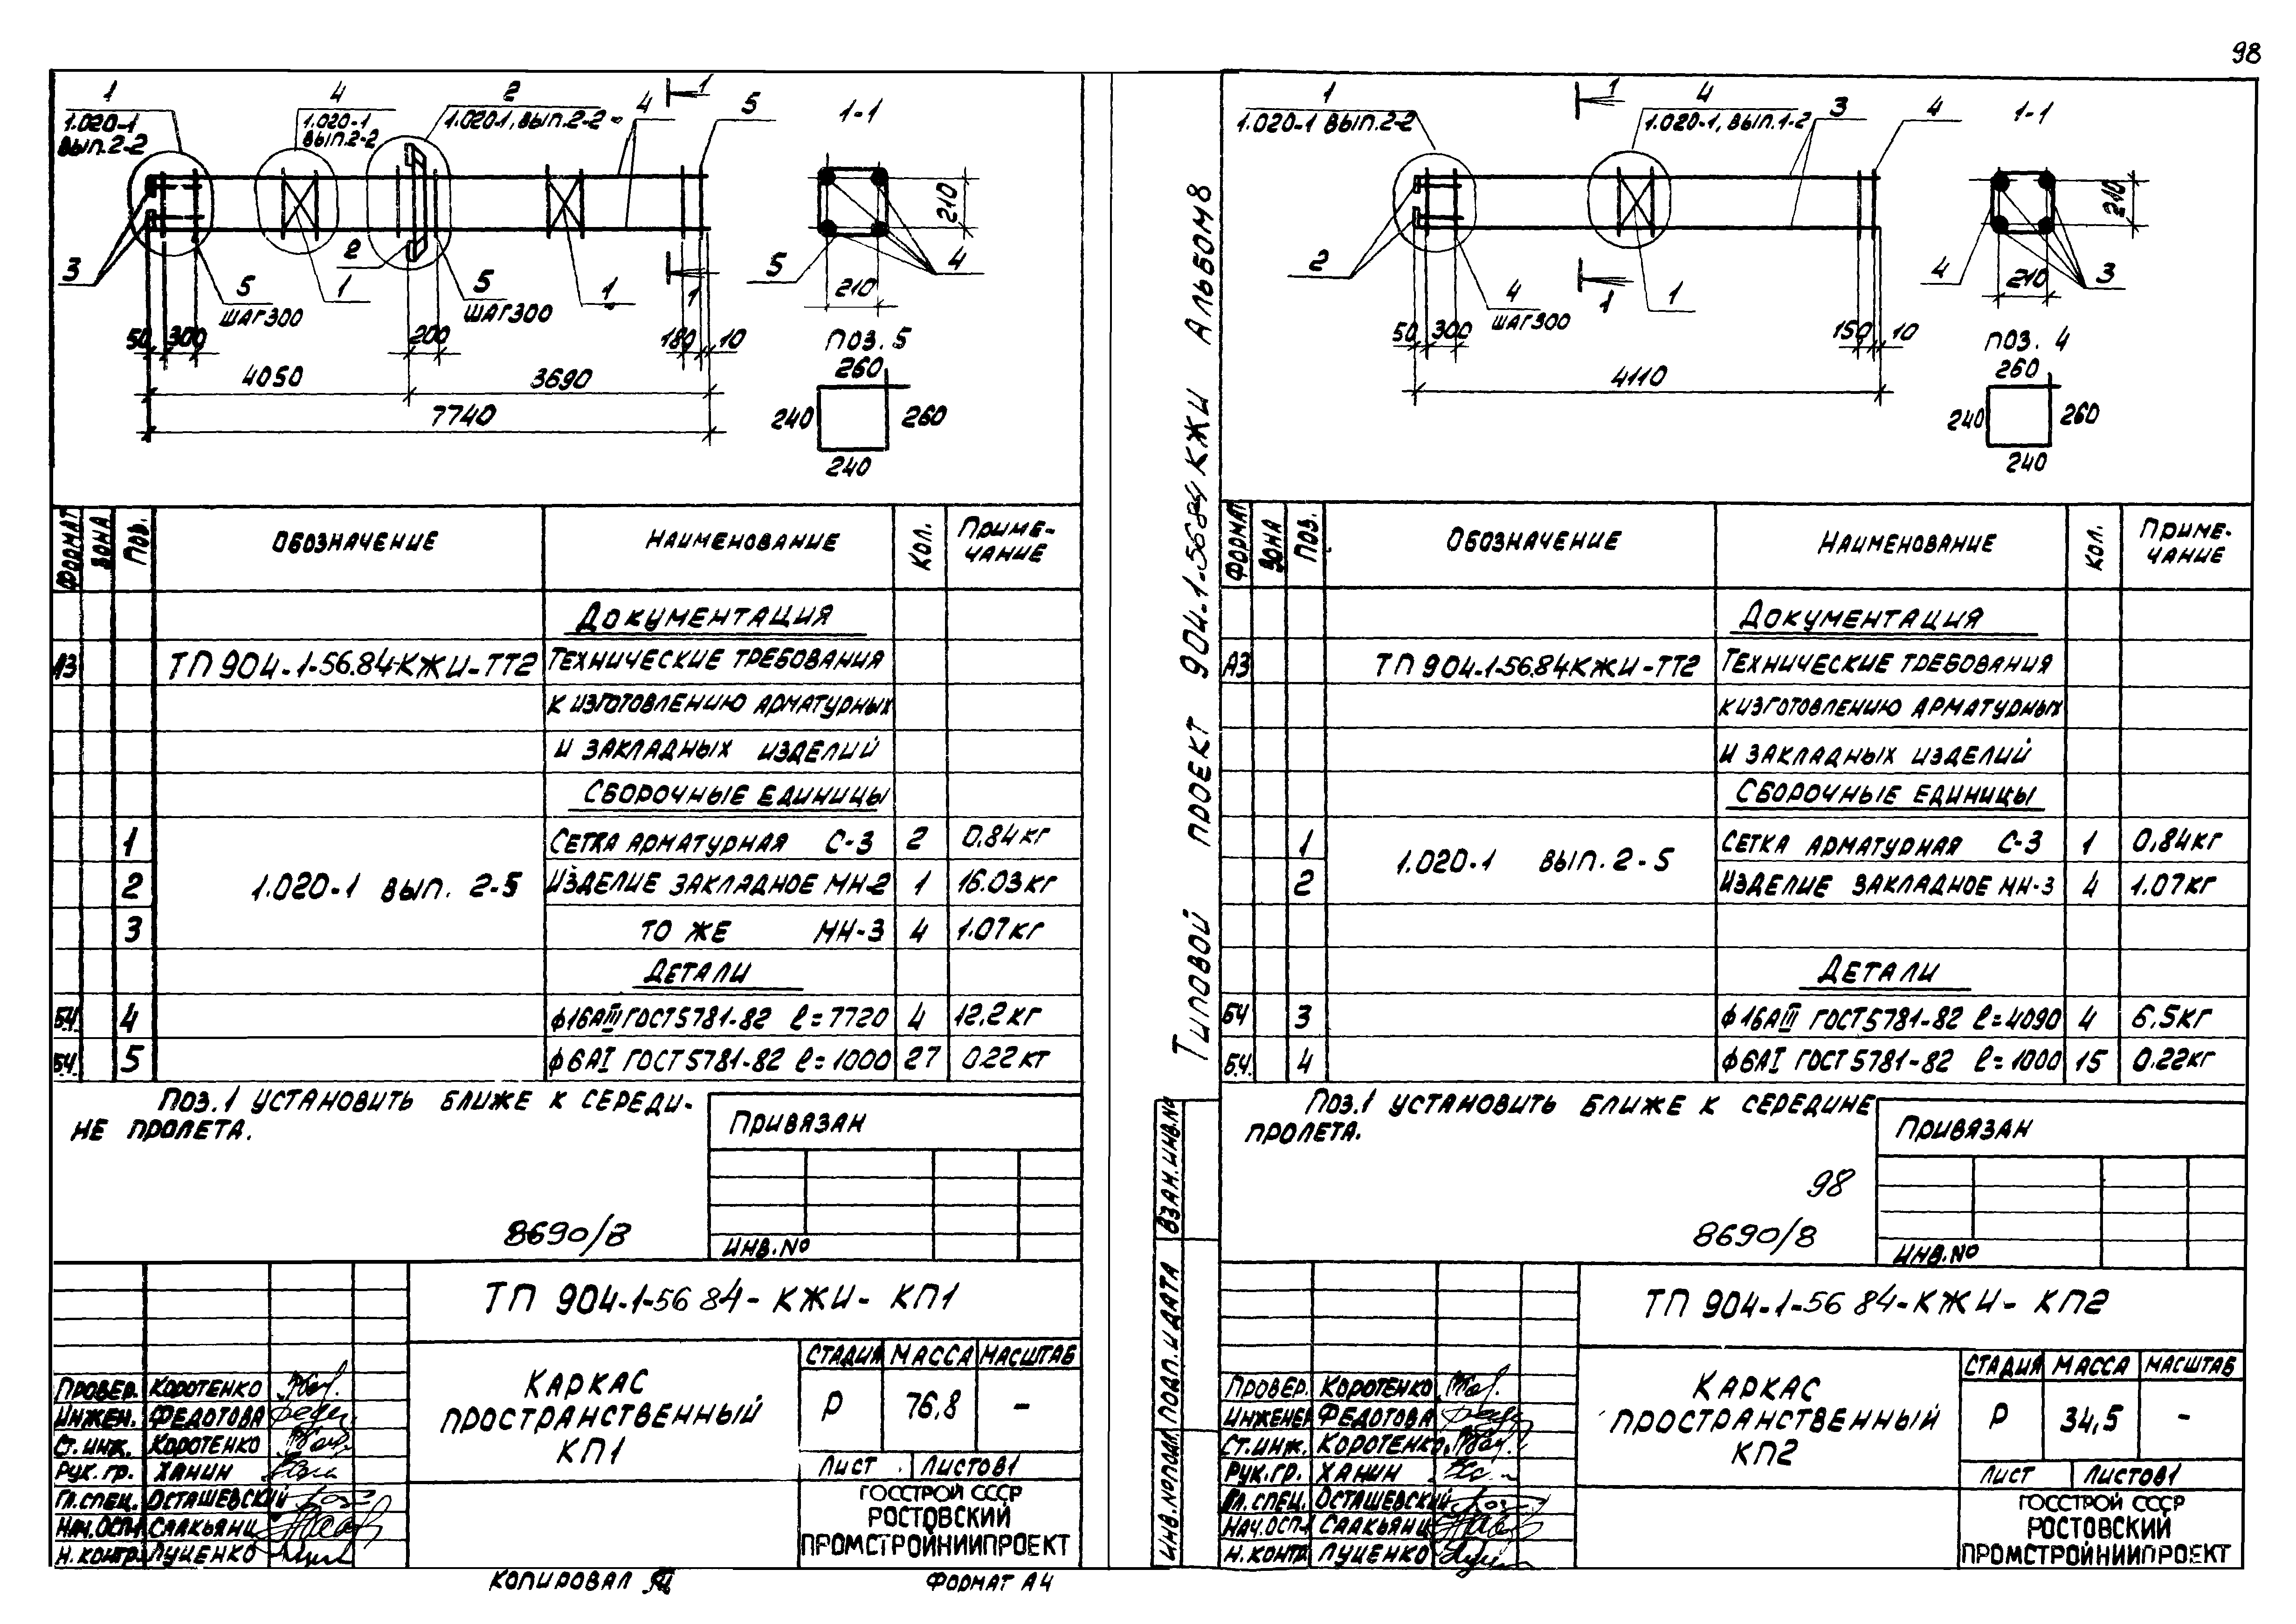 98
1
1.020-1
ВЫП.2-2
4
1.020-1
ВЫП.2-2
2
1.020-1, ВЫП.2-2
4
1
5
1-1
3
5
ШАГ300
1
2
5
ШАГ300
1
1
5
4
210
210
50
300
200
180
10
4050
3690
7740
ПОЗ. 5
260
240
260
240
ФОРМАТ
ЗОНА
ПОЗ.
ОБОЗНАЧЕНИЕ
НАИМЕНОВАНИЕ
КОЛ.
ПРИМЕ-
ЧАНИЕ
ДОКУМЕНТАЦИЯ
А3 ТП 904-1-56.84-КЖИ-ТТ2 ТЕХНИЧЕСКИЕ ТРЕБОВАНИЯ
К ИЗГОТОВЛЕНИЮ АРМАТУРНЫХ
И ЗАКЛАДНЫХ ИЗДЕЛИЙ
СБОРОЧНЫЕ ЕДИНИЦЫ
1 СЕТКА АРМАТУРНАЯ С-3 2 0.84 КГ
2 1.020-1 ВЫП. 2-5 ИЗДЕЛИЕ ЗАКЛАДНОЕ МН-2 1 16.03 КГ
3 ТО ЖЕ МН-3 4 1.07 КГ
ДЕТАЛИ
БЧ. 4 ф16АIII ГОСТ 5781-82 ℓ=7720 4 12,2 КГ
БЧ. 5 ф6АI ГОСТ 5781-82 ℓ=1000 27 0.22 КГ
ПОЗ.1 УСТАНОВИТЬ БЛИЖЕ К СЕРЕДИ-
НЕ ПРОЛЕТА.
ПРИВЯЗАН
8690/8
ИНВ.№
ТП 904-1-56 84-КЖИ-КП1
КАРКАС
ПРОСТРАНСТВЕННЫЙ
КП1
СТАДИЯ МАССА МАСШТАБ
Р 76,8 –
ЛИСТ ЛИСТОВ 1
ПРОВЕР. КОРОТЕНКО
ИНЖЕН. ФЕДОТОВА
СТ. ИНЖ. КОРОТЕНКО
РУК. ГР. ХАНИН
ГЛ.СПЕЦ. ОСТАШЕВСКИЙ
НАЧ.ОСП-1 СААКЬЯНЦ
Н. КОНТР. ЛУЦЕНКО
ГОССТРОЙ СССР
РОСТОВСКИЙ
ПРОМСТРОЙНИИПРОЕКТ
КОПИРОВАЛ
ФОРМАТ А4
ТИПОВОЙ ПРОЕКТ 904-1-56 84 КЖИ АЛЬБОМ 8
ИНВ. №ПОДЛ. ПОДП. И ДАТА ВЗАМ.ИНВ.№
1
1.020-1 ВЫП.2-2
1
4
1.020-1, ВЫП.1-2
3
4
1-1
2
4
ШАГ300
1
1
4
3
210
210
50
300
150
10
4110
ПОЗ. 4
260
240
260
240
ФОРМАТ
ЗОНА
ПОЗ.
ОБОЗНАЧЕНИЕ
НАИМЕНОВАНИЕ
КОЛ.
ПРИМЕ-
ЧАНИЕ
ДОКУМЕНТАЦИЯ
А3 ТП 904-1-56.84КЖИ-ТТ2 ТЕХНИЧЕСКИЕ ТРЕБОВАНИЯ
К ИЗГОТОВЛЕНИЮ АРМАТУРНЫХ
И ЗАКЛАДНЫХ ИЗДЕЛИЙ
СБОРОЧНЫЕ ЕДИНИЦЫ
1 1.020-1 ВЫП. 2-5 СЕТКА АРМАТУРНАЯ С-3 1 0,84 КГ
2 ИЗДЕЛИЕ ЗАКЛАДНОЕ МН-3 4 1.07 КГ
ДЕТАЛИ
БЧ 3 ф16АIII ГОСТ 5781-82 ℓ=4090 4 6,5 КГ
БЧ. 4 ф6АI ГОСТ 5781-82 ℓ=1000 15 0.22 КГ
ПОЗ.1 УСТАНОВИТЬ БЛИЖЕ К СЕРЕДИНЕ
ПРОЛЕТА.
ПРИВЯЗАН
98
8690/8
ИНВ.№
ТП 904-1-56 84-КЖИ-КП2
КАРКАС
ПРОСТРАНСТВЕННЫЙ
КП2
СТАДИЯ МАССА МАСШТАБ
Р 34,5 –
ЛИСТ ЛИСТОВ 1
ПРОВЕР. КОРОТЕНКО
ИНЖЕНЕР ФЕДОТОВА
СТ.ИНЖ. КОРОТЕНКО
РУК.ГР. ХАНИН
ГЛ.СПЕЦ. ОСТАШЕВСКИЙ
НАЧ.ОСП-1 СААКЬЯНЦ
Н. КОНТР. ЛУЦЕНКО
ГОССТРОЙ СССР
РОСТОВСКИЙ
ПРОМСТРОЙНИИПРОЕКТ